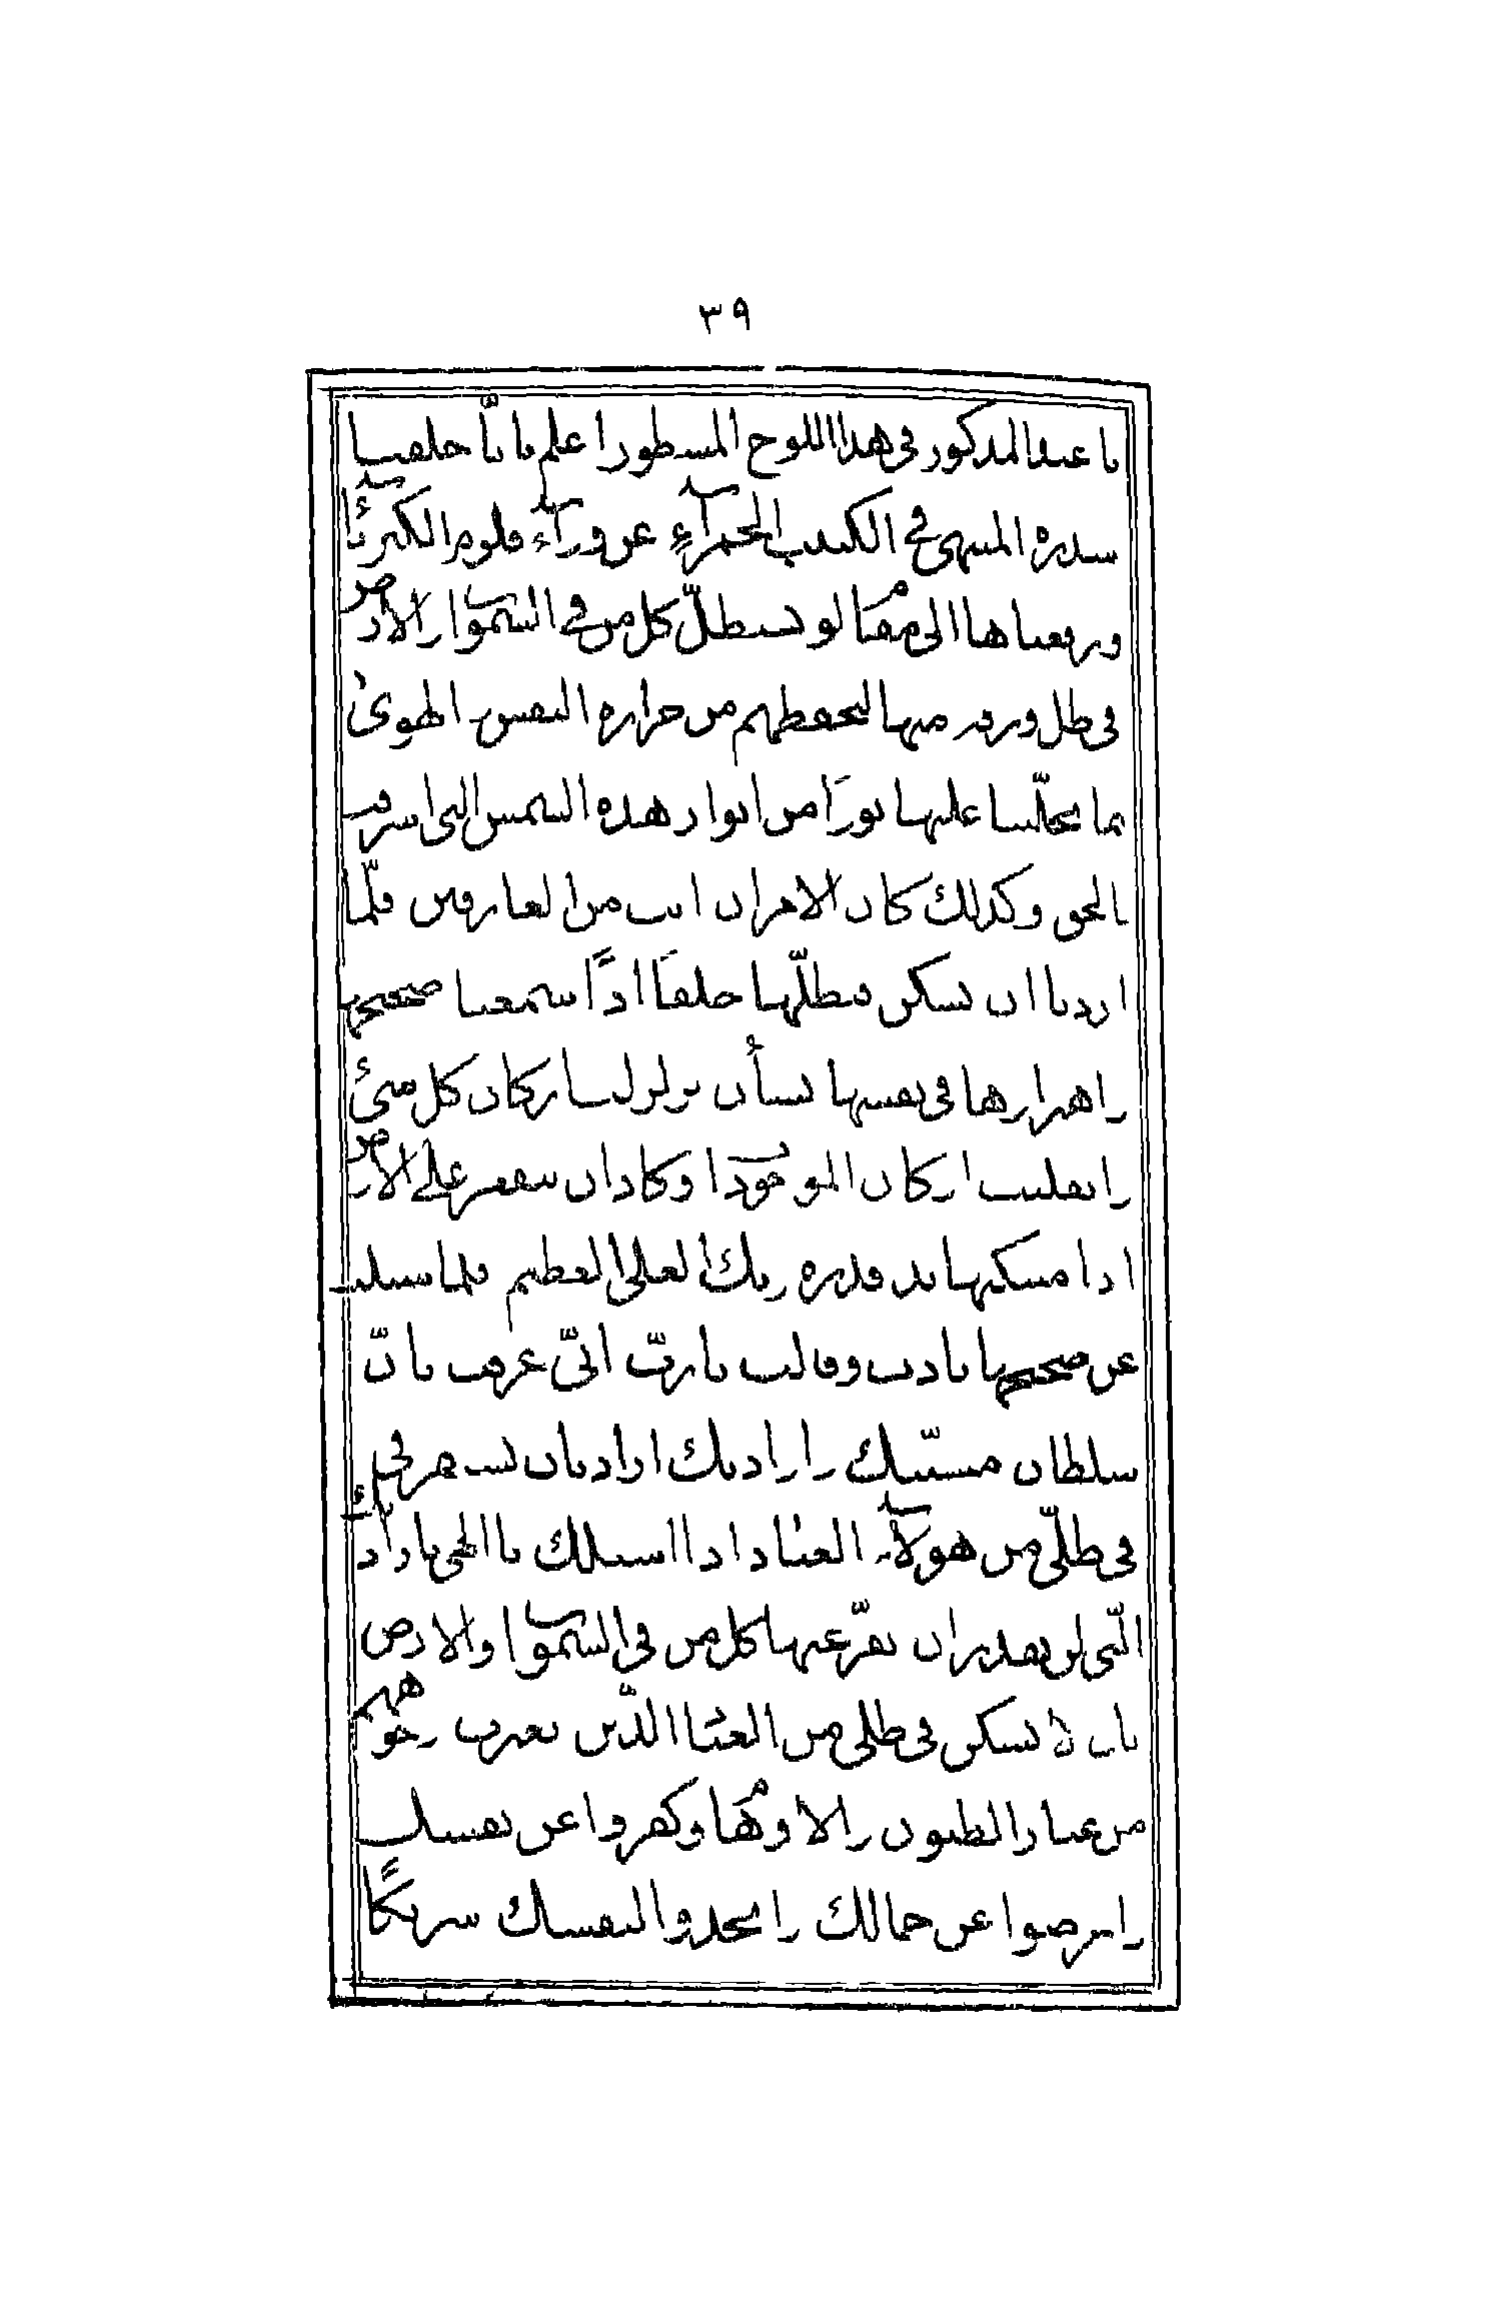 ٣٩
يا عبد المذكور في هذا اللوح المسطور اعلم بانّا خلقنا
سدرة المنتهى في الكثيب الحمرآء عن ورآء قلزم الكبريآء
ورفعناها الى مقام لو يستظلّ كل من في السموات والارض
في ظل ورقة منها ليحفظهم من حرارة النفس والهوى
بما تجلّينا عليها نورا من انوار هذه الشمس التي اشرقت
بالحق وكذلك كان الامر ان انت من العارفين فلمّا
اردنا ان نسكن بظلّها خلقا اذًا سمعنا ضجيجها
واهتزازها في نفسها بشأن تزلزلت اركان كل شئ
وانقلبت اركان الموجودات وكاد ان ينقعر على الارض
اذا مسكها يد قدرة ربك العلي العظيم فلما سكنت
عن ضجيجها نادت وقالت يا ربّ انّي عرفت بانّ
سلطان مشيّتك وارادتك اراد بان يستقر في
في ظلّي من هولآء العباد اذا اسئلك يا الهي بارادتك
التّي لن يقدر ان يفرّ عنها كل من في السموات والارض
بان لا تسكن في ظلي من العباد الذّين تغبرت وجوههم
من غبار الظنون والاوهام وكفروا عن نفسك
واعرضوا عن جمالك واتخذوا لنفسك شريكًا